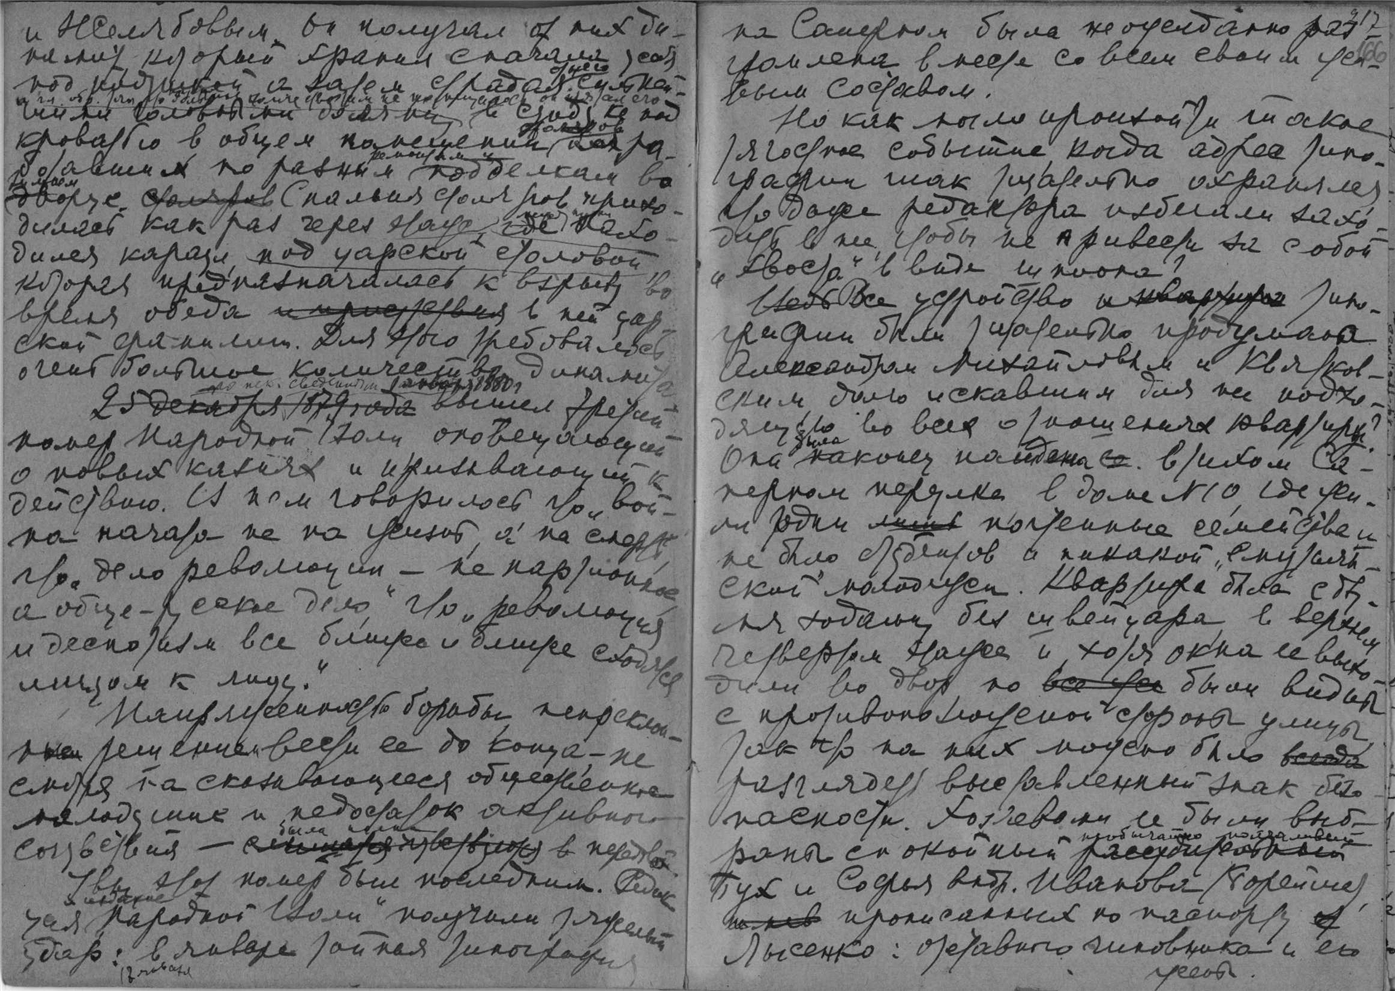 и Желябовым. Он получал от них ди-
намит который хранил сначала у себя
под подушкой а затем страдая сильней-
шими головными болями
кроватью в общем помещении
ботавших по разным подделкам во
дворце столяров (спальня столяров прихо-
дилась как раз через этаж, где нахо-
дился караул, под царской столовой
которая предназначалась к взрыву во
время обеда и присутствия в ней цар-
ской фамилии. Для этого требовалось
очень большое количество динамита
по нек. сведениям 1 января 1880 г
25 декабря 1879 года вышел третий
номер Народной Воли оповещающий
о новых казнях и призывающий к
действию. В нем говорилось что „вой-
на начата не на жизнь, а на смерть"
что „дело революции — не партионное,
а обще-русское дело," что „революция
и деспотизм все ближе и ближе сходятся
лицом к лицу."
Напряженность борьбы непреклон-
решение вести ее до конца — не
смотря на сказывающееся общественное
малодушие и недостаток активного
сочувствия —
была в передовой.
Увы, этот номер был последним. Редак
издание
ция „Народной Воли" получили тяжелый
удар: в январе тайная типография
17 января
217
166
на Саперном была неожиданно раз-
громлена вместе со всем своим жи-
вым составом.
Но как могло произойти такое
тягостное событие, когда адрес типо-
графии так тщательно охранялся,
что даже редактора избегали захо-
дить в нее, чтобы не привести за собой
„хвоста" в виде шпиона?
Все устройство и квартира типо-
графии были тщательно продуманы
Александром Михайловым и Квятков-
ским долго искавшим для нее подхо-
дящую во всех отношениях квартиру.
была
Она наконец найдена в тихом Са-
перном переулке в доме N 10 где жи-
ли одни лишь почтенные семейства и
не было студентов и никакой „нигилисти-
ской" молодежи. Квартира была с дву-
мя ходами, без швейцара в верхнем
четвертом этаже и хотя окна ее выхо-
дили во двор, но все же были видны
с противоположной стороны улицы
так что на них можно было всегда
разглядеть выставленный знак безо-
пасности. Хозяевами ее были выб-
необычайно молчаливый
раны спокойный рассудительный
Бух и Софья Андр. Иванова (Борейша)
прописанных по паспорту
Лысенко: отставного чиновника и его
жены.